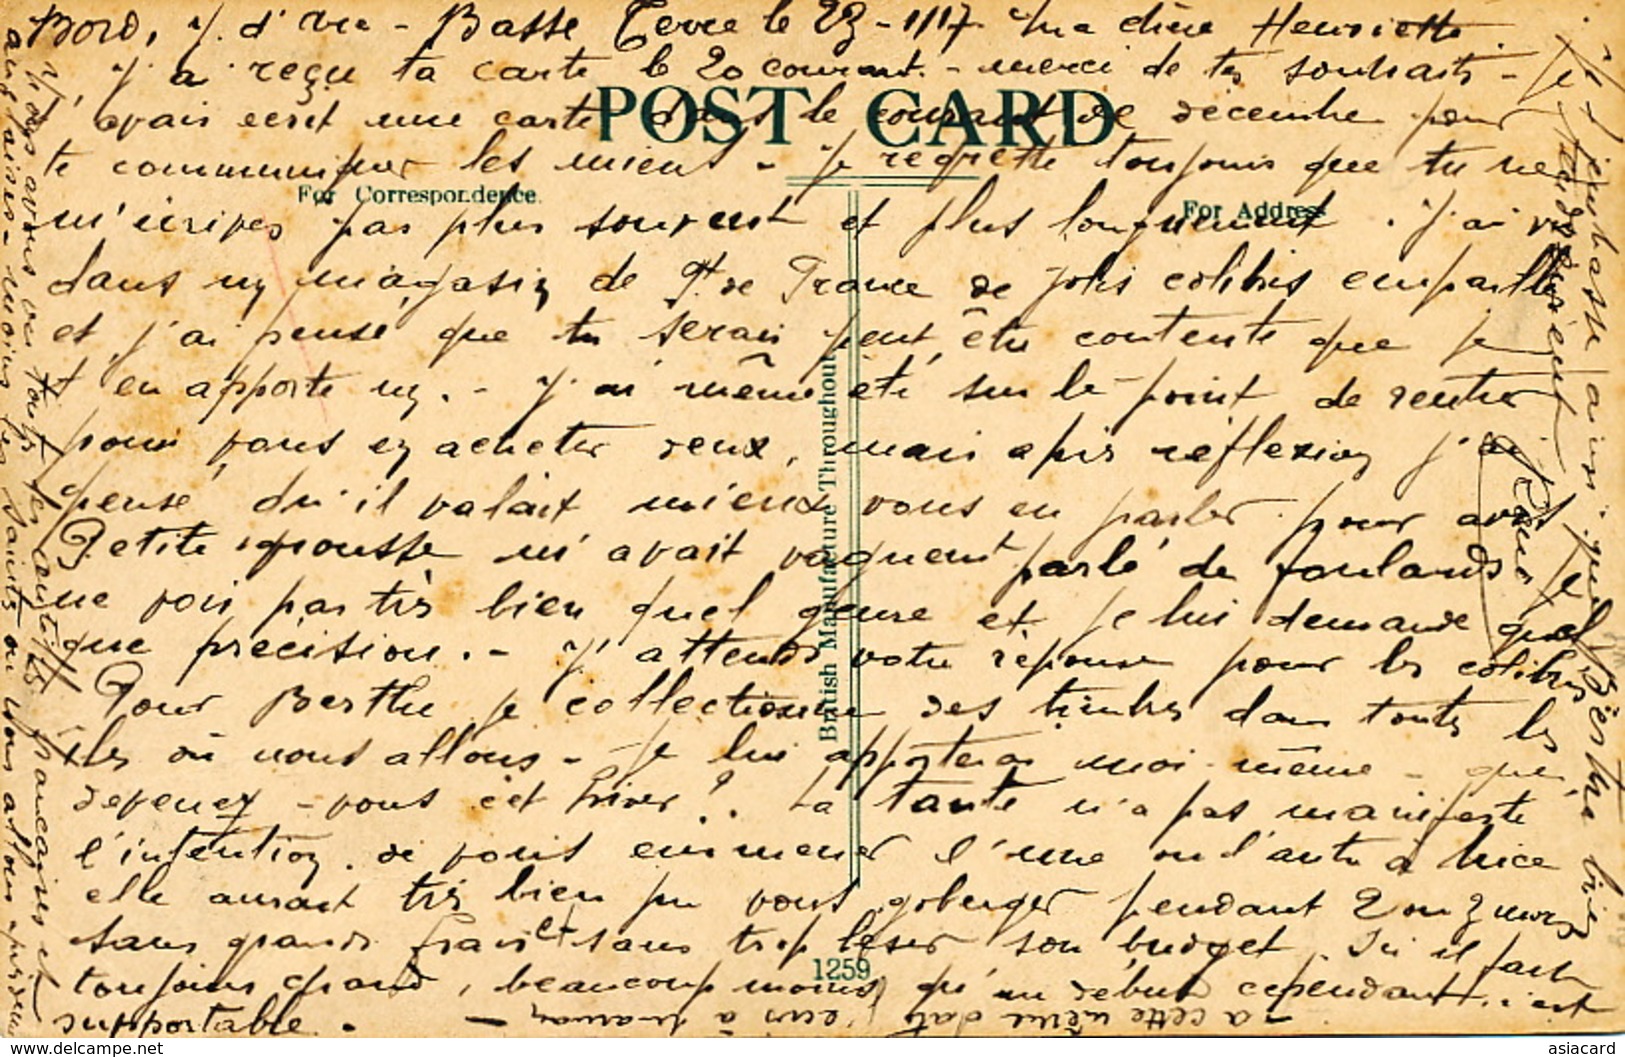 Bord, J. d' Vic - Basse Terre le 23-1/17. Ma chère Henriette.
J'ai reçu ta carte le 20 courant. - merci de tes souhaits - Je
t'avais écrit une carte dans le courant de décembre pour
te communiquer les miens - je regrette toujours que tu ne
m'écrives pas plus souvent et plus longuement. J'ai vu
dans un magasin de Ft de France de jolis colibris empaillés
et j'ai pensé que tu serais peut être contente que je
t'en apporte un. - J'ai même été sur le point de rentrer
pour vous en acheter deux, mais après réflexion j'ai
pensé qu'il valait mieux vous en parler pour avis
Petite gousse m'avait vaguemt parlé de foulards
ne vois pas très bien quel genre et je lui demande quel
que précision. - J'attends votre réponse pour les colibris
Pour Berthe je collectionne des timbres dans toutes les
îles où nous allons - Je lui apporterai moi-même - que
devenez-vous cet hiver ? La Tante n'a pas manifesté
l'intention de vous emmener l'une ou l'autre à Nice
elle aurait très bien pu vous goberger pendant 2 ou 3 mois
sans grands frais et sans trop léser son budget. Ici il fait
toujours chaud, beaucoup moins qu'au début cependant. c'est
supportable. -
- à cette même date j'écris à maman -
Vous avons vu toutes les Antilles françaises et
anglaises - moins les Saints où nous allons
Je t'embrasse ainsi que Berthe bien
POST CARD
For Correspondence.
For Address
British Manufacture Throughout
1259
delcampe.net
asiacard